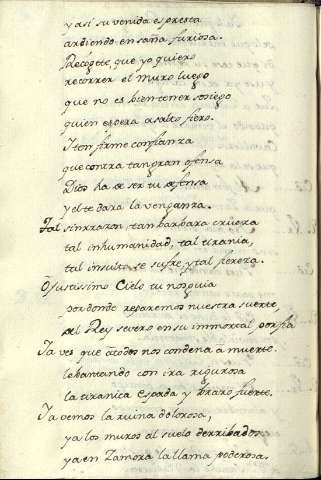 y asi su venida es presta
ardiendo en saña furiosa.
Recogete, que yo quiero
recorrer el muro luego
que no es bien tener sosiego
quien espera asalto fiero.
Iten firme confianza
que contra tan gran ofensa
Dios ha de ser tu defensa
y el te dara la venganza.
Tal sinrrazon, tan barbara crueza
tal inhumanidad, tal tirania,
tal insulto se sufre, y tal fiereza.
O justissimo Cielo tu nos guia
por donde reparemos nuestra suerte,
del Rey severo en su inmortal porfia
Ya ves que a todos nos condena a muerte.
lebantando con ira rigurosa
la tiranica espada y brazo fuerte.
Ya vemos la ruina dolorosa,
ya los muros al suelo derribados
ya en Zamora la llama poderosa.